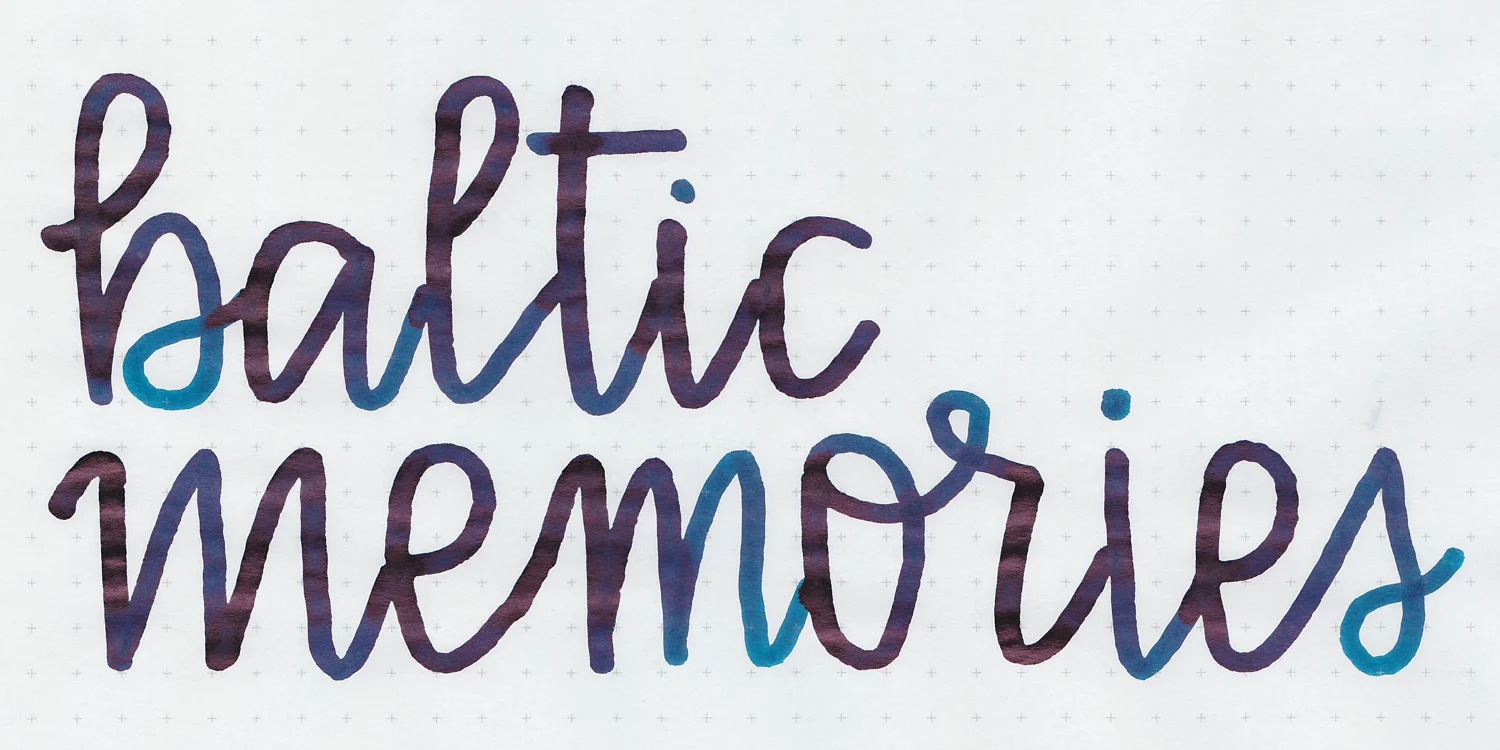 baltic
memories